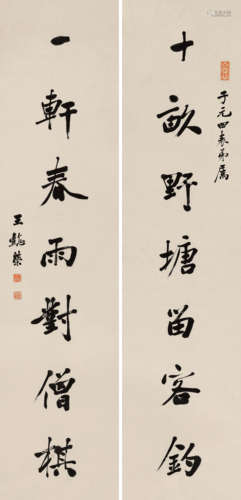 子元四表弟属
十畝野塘留客釣
一軒春雨對僧棋
王懿榮